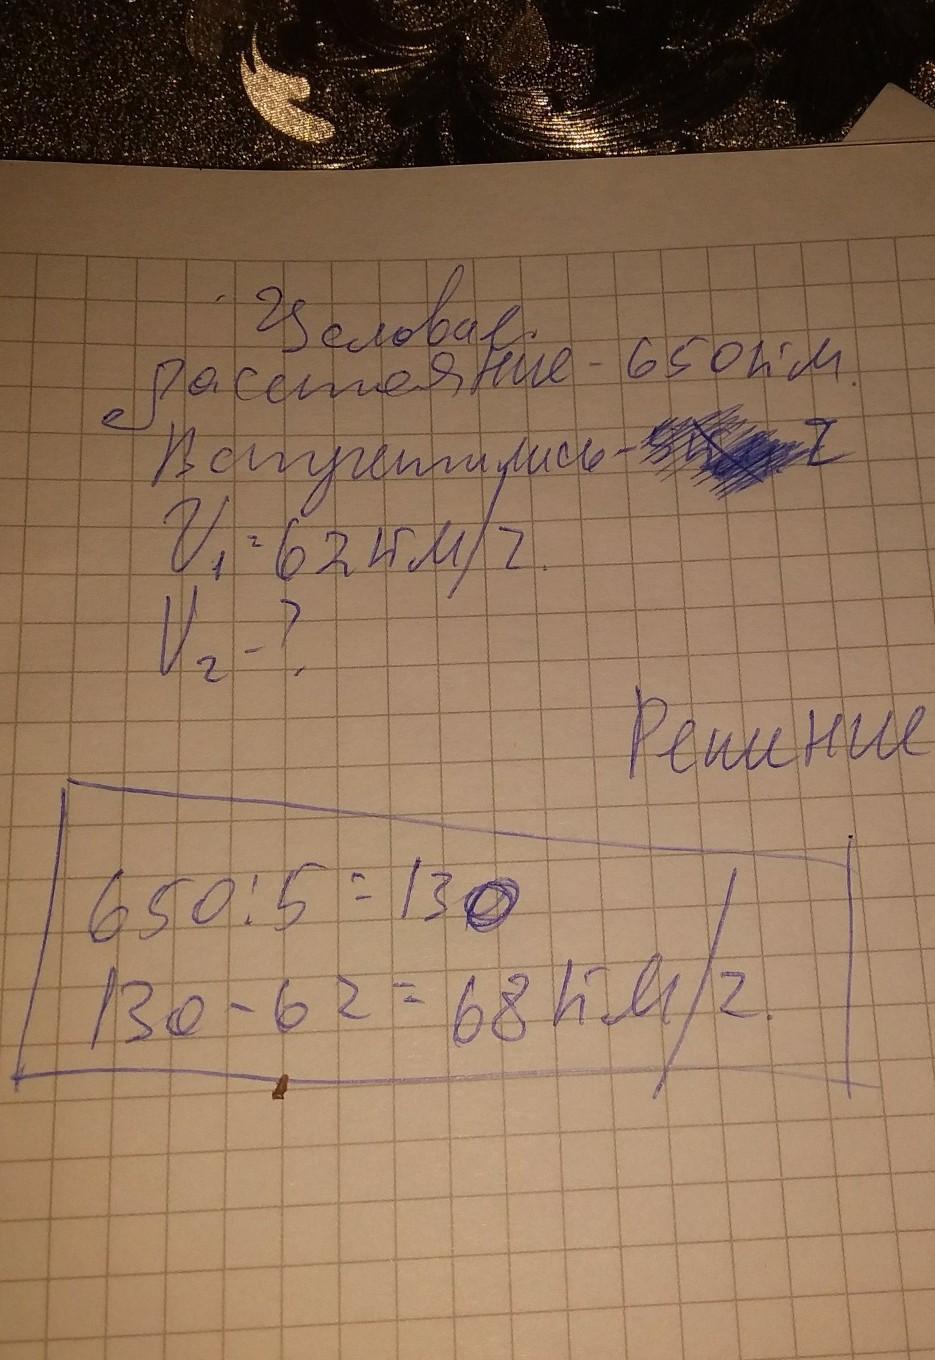 Условие.
Расстояние - 650 км.
Встретились - ч
V₁ = 62 км/ч.
V₂ - ?
Решение
650 : 5 = 130
130 - 62 = 68 км/ч.